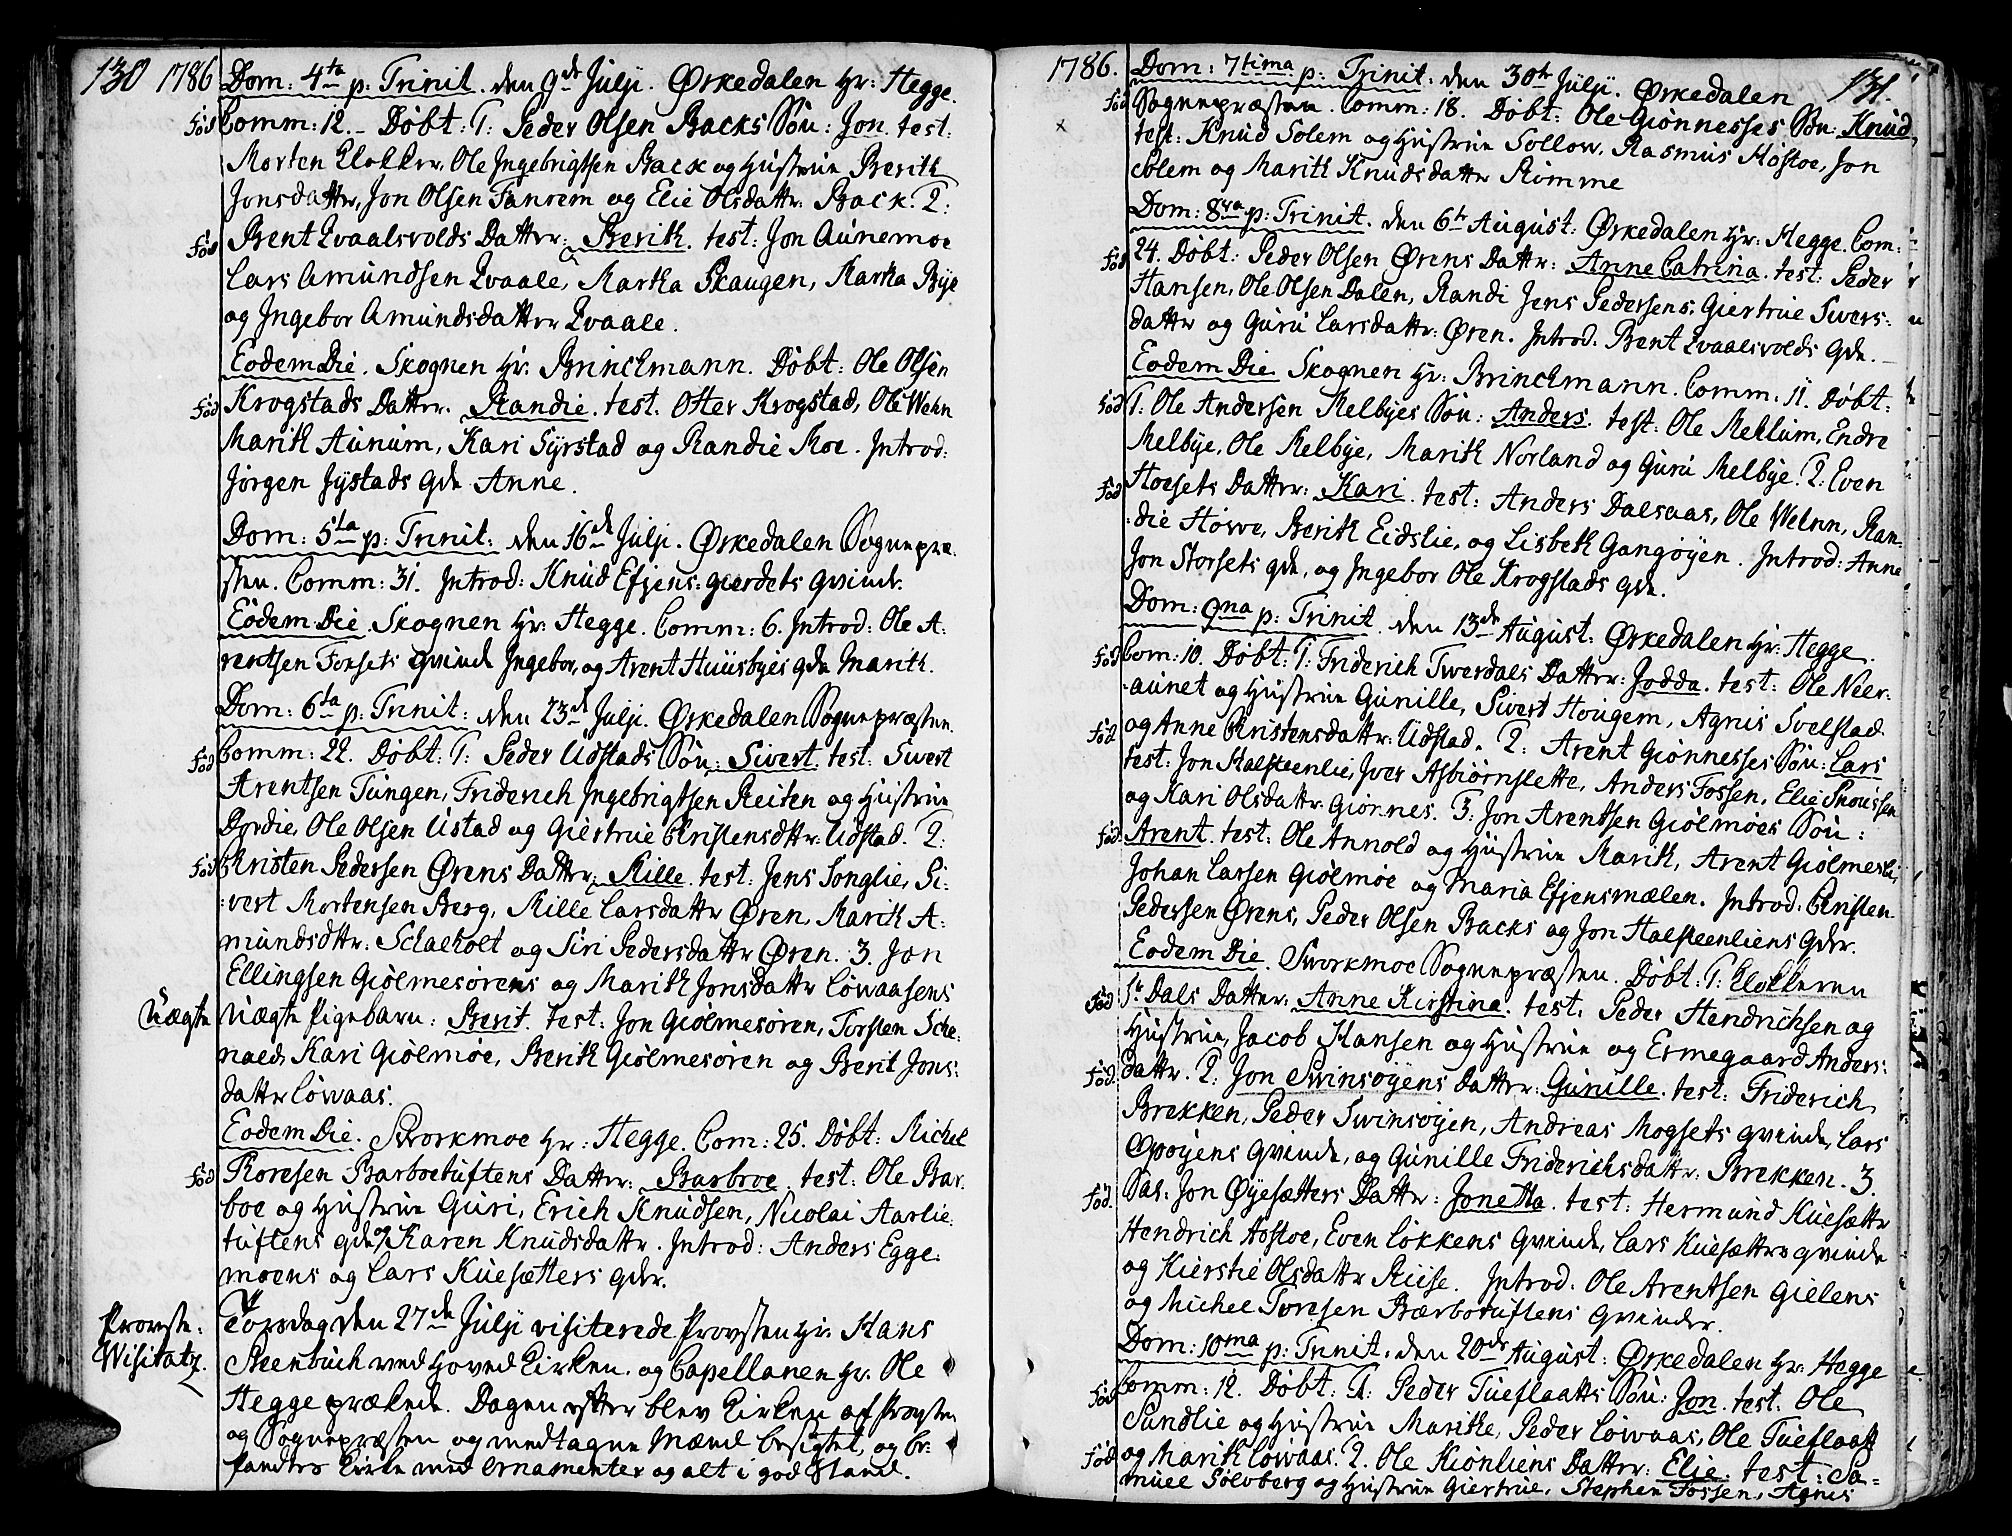 130 1786 Dom: 4ta p: Trinit. den 9de Julji. Ørkedalen Hr: Hegge.
Fød Comm: 12. Døbt: 1: Peder Olsen Backs Søn: Jon. test:
Morten Klokker, Ole Ingebrigtsen Back og Hustrue Berith
Jonsdatter, Jon Olsen Fanrem og Elie Olsdattr: Back. 2:
Fød Brent Qvaalsvolds Datter: Berith. test: Jon Aunemoe
Lars Amundsen Qvaale, Martha Skaugen, Martha Bye
og Ingebor Amundsdatter Qvaale.
Eodem Die. Skognen Hr: Brinchmann. Døbt: Ole Olsen
Fød Krogstads Datter. Randie. test. Otter Krogstad, Ole Wehn
Marith Aunum, Kari Syrstad og Randie Moe. Introd:
Jørgen Jystads Qde Anne.
Dom: 5ta p: Trinit: den 16de Julji. Ørkedalen Sognepræ-
sten. Comm: 31. Introd: Knud Efjens-gierdets Qvinde.
Eodem Die. Skognen Hr: Hegge. Comm: 6. Introd: Ole A-
rentsen Forsets Qvinde Ingebor, og Arent Huusbyes Qde Marith.
Dom: 6ta p: Trinit: den 23de Julji. Ørkedalen Sognepræsten.
Fød Comm: 22. Døbt: 1: Peder Udstads Søn: Sivert. test: Sivert
Arentsen Tungen, Friderich Ingebrigtsen Reiten og Hustrue
Dordie, Ole Olsen Ustad og Giertrue Christensdttr: Udstad. 2:
Fød Christen Pedersen Ørens Datter: Mille. test: Jens Songlie, Si-
:vert Mortensen Berg, Mille Larsdattr Øren, Marith A-
mundsdttr: Schaeholt og Siri Pedersdattr Øren. 3. Jon
Ellingsen Giølmesørens og Marith Jonsdattr Løwaasens
Uægte Uægte Pigebarn: Berit. test: Jon Giølmesøren, Torsten Sche-
naed, Kari Giølmøe, Berith Giølmesøren og Berit Jons:
datter Løwaas.
Eodem Die. Sworkmoe Hr: Hegge. Com: 25. Døbt: Michel
Fød Toresen Barboetuftens Datter: Barbroe. test: Ole Bar-
boe og Hustrue Guri, Erich Knudsen, Nicolai Aarlie-
tuftens Qde og Karen Knudsdattr. Introd: Anders Egge-
moens og Lars Kuesætters Qdr.
Provste-
Wisitatz. Torsdag den 27de Julji visiterede Provsten Hr. Hans
Steenbuch ved Hoved Kirken, og Capellanen Hr. Ole
Hegge prækede. Dagen efter blev Kirken af Provsten
og Sognepræsten og medtagne Mænd besigtet, og be-
fandtes Kirke med Ornamenter og alt i god Stand.
1786. Dom: 7tima p: Trinit: den 30te Julji. Ørkedalen 131.
Fød Sognepræsten. Comm: 18. Døbt: Ole Giønnesses Søn: Knud,
test: Knud Solem og Hustrue Sollow, Rasmus Hostoe, Jon
Solem og Marith Knudsdattr Romme
Dom: 8va p: Trinit. den 6te August: Ørkedalen Hr: Hegge. Com:
Fød 24. Døbt: Peder Olsen Ørens Dattr: Anne Catrina. test: Peder
Hansen, Ole Olsen Dalen, Randi Jens Pedersens, Giertrue Swers:
dattr og Guru Larsdattr: Øren. Introd. Brent Qvaalsvolds Qde.
Eodem Die. Skognen Hr: Brinchmann. Comm: 11. Døbt:
Fød 1: Ole Andersen Melbyes Søn: Anders. test: Ole Mehlum, Endre
Melbye, Ole Melbye, Marith Norland og Guru Melbye. 2: Even
Fød Hoesets Datter: Kari. test: Anders Dalsaas, Ole Wehn, Ran-
:die Høwe, Berith Eidslie, og Lisbeth Gangøyen. Introd: Anne
Jon Storsets Qde, og Ingebor Ole Krogstads Qde.
Dom: 9na p: Trinit. den 13de August: Ørkedalen Hr: Hegge.
Fød Com: 10. Døbt: 1: Friderich Twerdals Datter: Jodda. test: Ole Neer-
-aunet og Hustrue Gunille, Sivert Hougem, Agnis Svelstad
Fød og Anne Christensdattr: Udstad. 2: Arent Giønnesses Søn: Lars
test: Jon Halsteenlie, Iver Asbiørnslette, Anders Fossen, Elie Snoussen
og Kari Olsdattr Giønnes. 3: Jon Arentsen Giølmoes Søn:
Fød Arent. test: Ole Annold og Hustrue Marith, Arent Giølmesli,
Johan Larsen Giølmoe og Maria Efjensmælen. Introd: Christen
Pedersen Ørens, Peder Olsen Backs og Jon Halsteenliens Qdr.
Eodem Die. Sworkmoe Sognepræsten. Døbt: 1: Klokkeren
Fød Sr. Dals Datter: Anne Kirstina. test: Peder Hendrichsen og
Hustrue, Jacob Hansen og Hustrue og Ermegaard Anders:
Fød dattr. 2: Jon Swinsøyens Datter: Gunille. test: Friderich
Brekken, Peder Swinsøyen, Andreas Mogsets Qvinde, Lars
Opøyens Qvinde, og Gunille Friderichsdattr: Brekken. 3.
Fød. Sas: Jon Øyesætters Dattr: Jonetta. test: Hermund Kuesættr
Hendrich Hostoe, Even Løkkens Qvinde, Lars Kuesætters Qvinde
og Kierstie Olsdattr Riise. Introd. Ole Arentsen Gielens
og Michel Toresen Bærbotuftens Qvinder.
Dom: 10ma p: Trinit. den 20de August: Ørkedalen Hr: Hegge
Fød Comm: 12. Døbt: 1: Peder Tueflaatts Søn: Jon. test: Ole
Sundlie og Hustrue Marithe, Peder Løwaas, Ole Tueflaatt
Fød og Marith Løwaas. 2. Ole Kiønliens Datter: Elie. test: Sa-
muel Sølvberg og Hustrue Giertrue, Stephen Fossen, Agnis